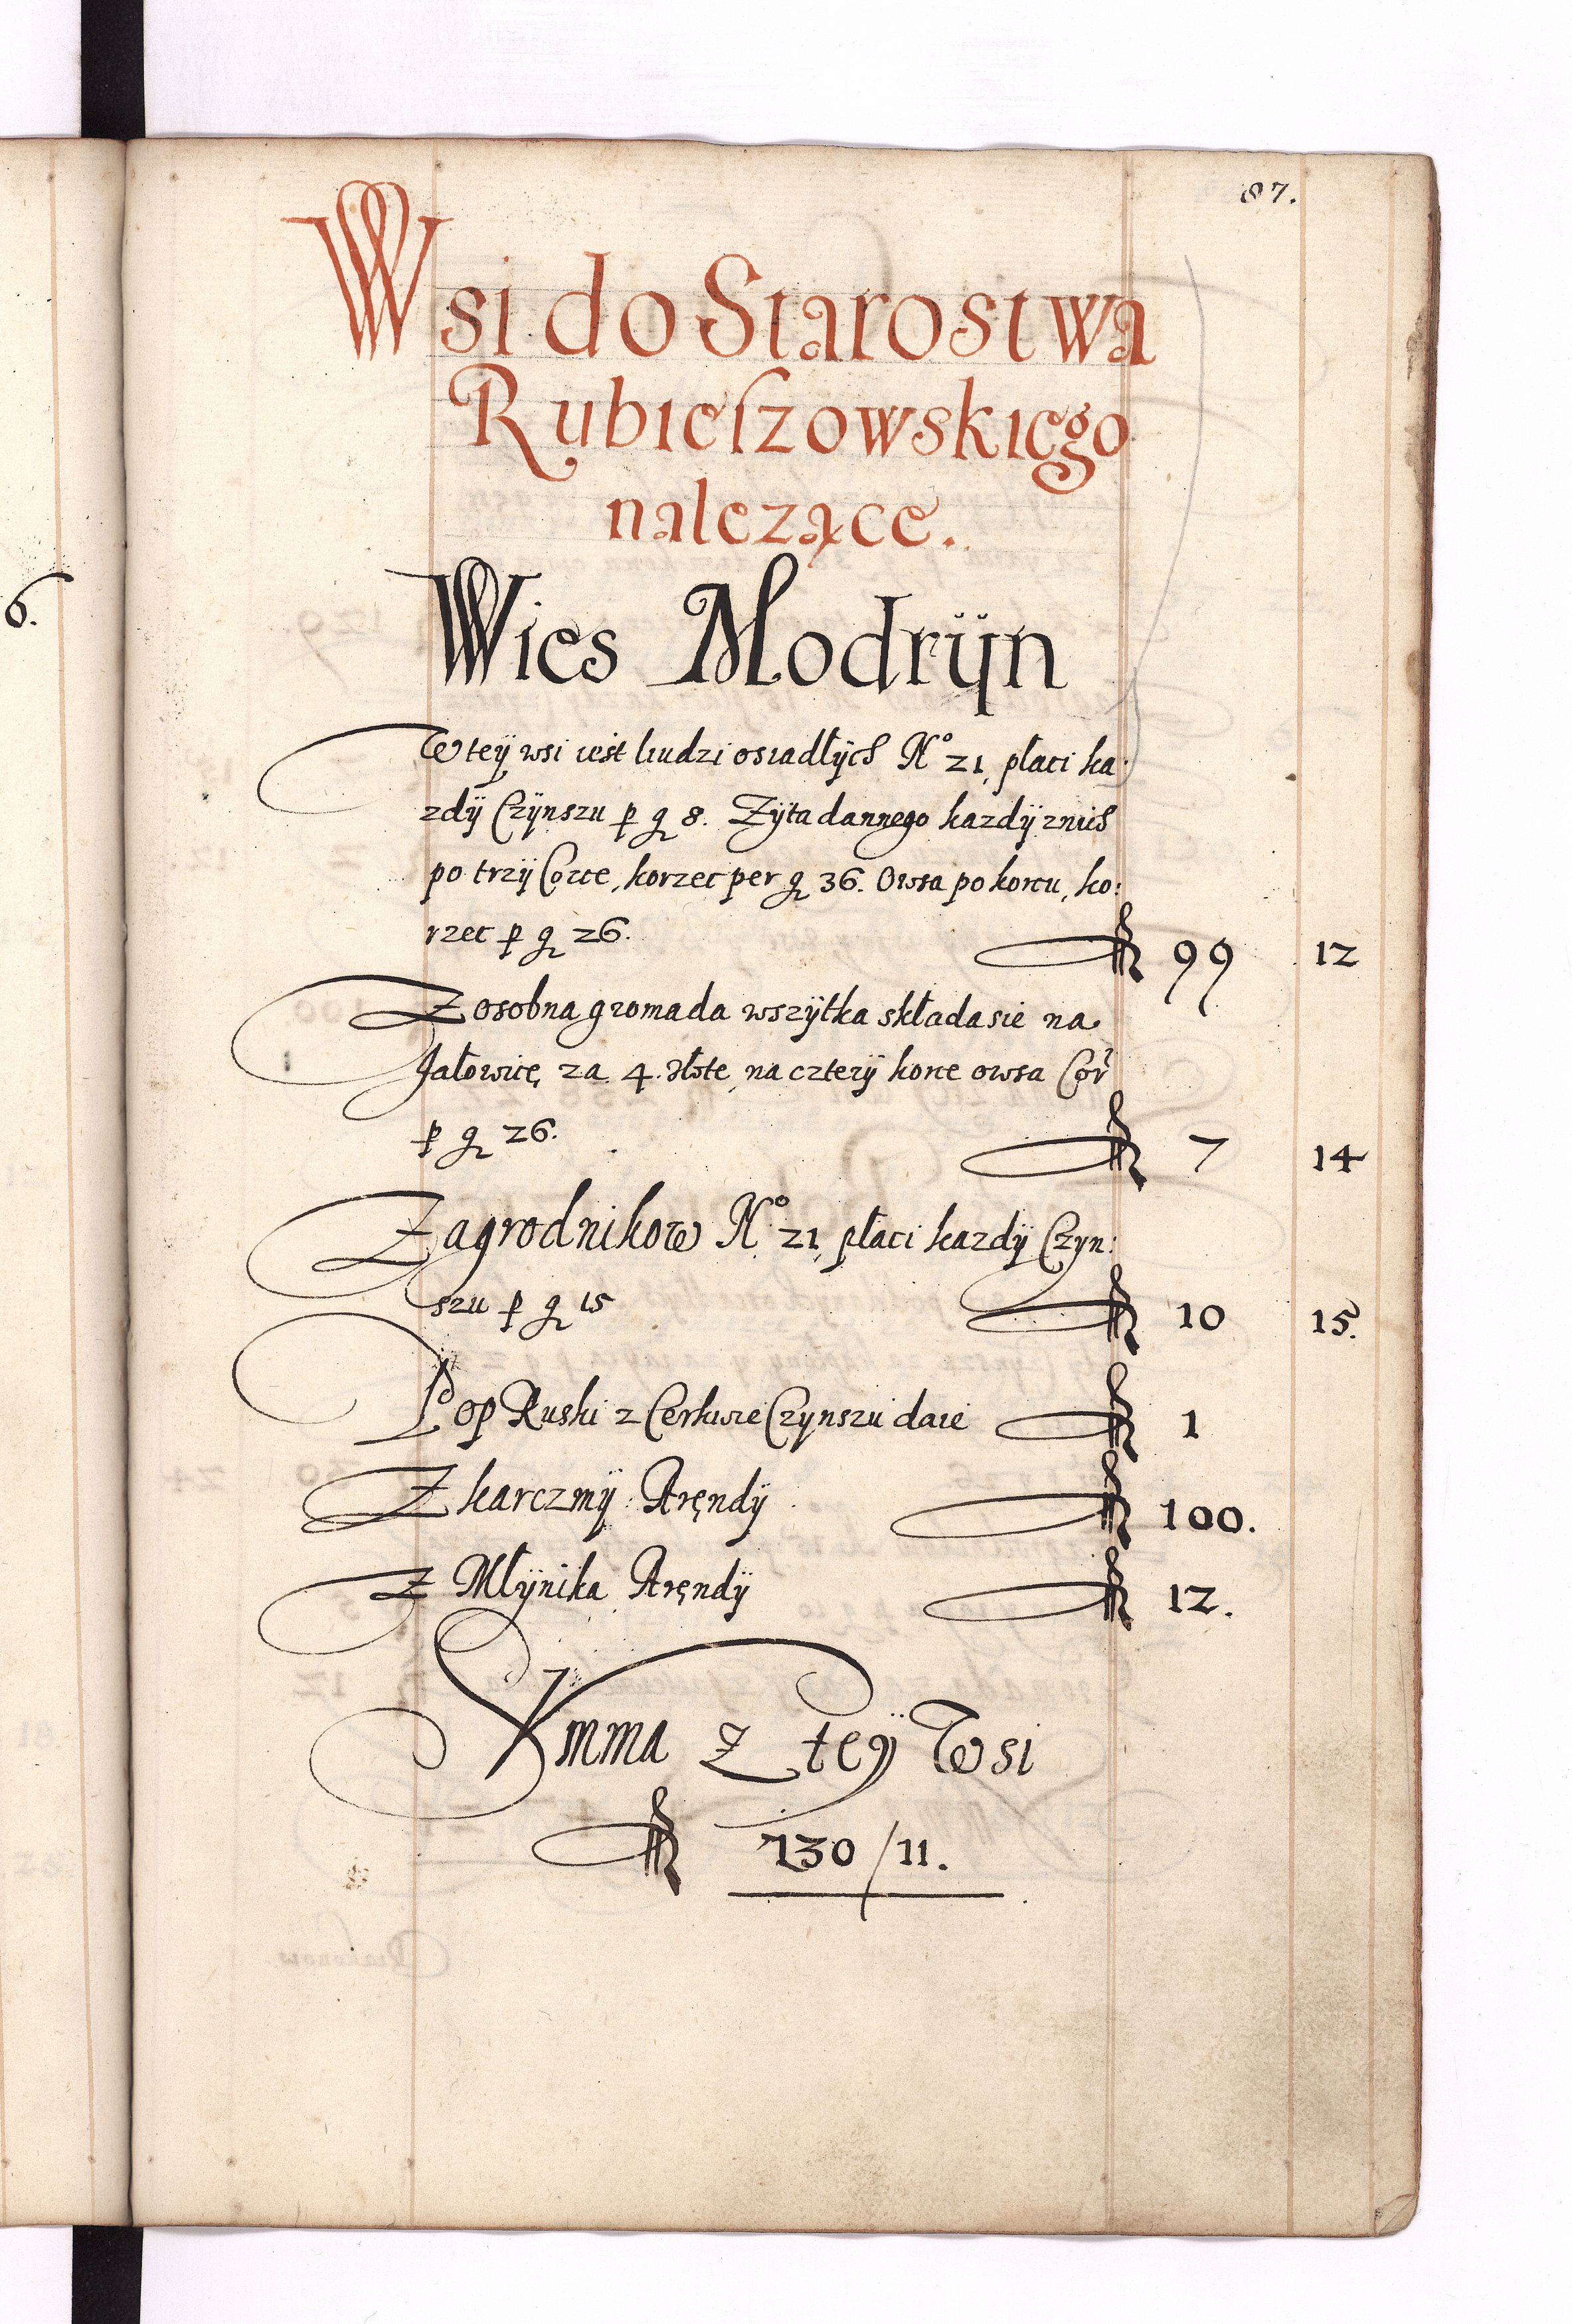 87.
Wsi do Starostwa
Rubieszowskiego
nalezące.
Wies Modrÿn
W teÿ wsi iest liudzi osiadłÿch No 21, płaci ka:
zdÿ Czÿnszu p g 8. Zÿta dannego kazdÿ znich
po trzÿ Corce, korzec per g 36. Owsa po korcu, ko:
rzec p g 26. 99 12
Z osobna gromada wszÿtka składa sie na
Jałowicę za 4. złote, na czterÿ korce owsa Cor
p g 26. 7 14
Zagrodnikow No 21, płaci kazdÿ Czyn:
szu p g 15 10 15.
Pop Ruski z Cerkwie Czynszu daie 1
Z karczmÿ Aręndÿ 100.
Z Młÿnika Aręndÿ 12.
Summa Z teÿ Wsi
230/11.
6.